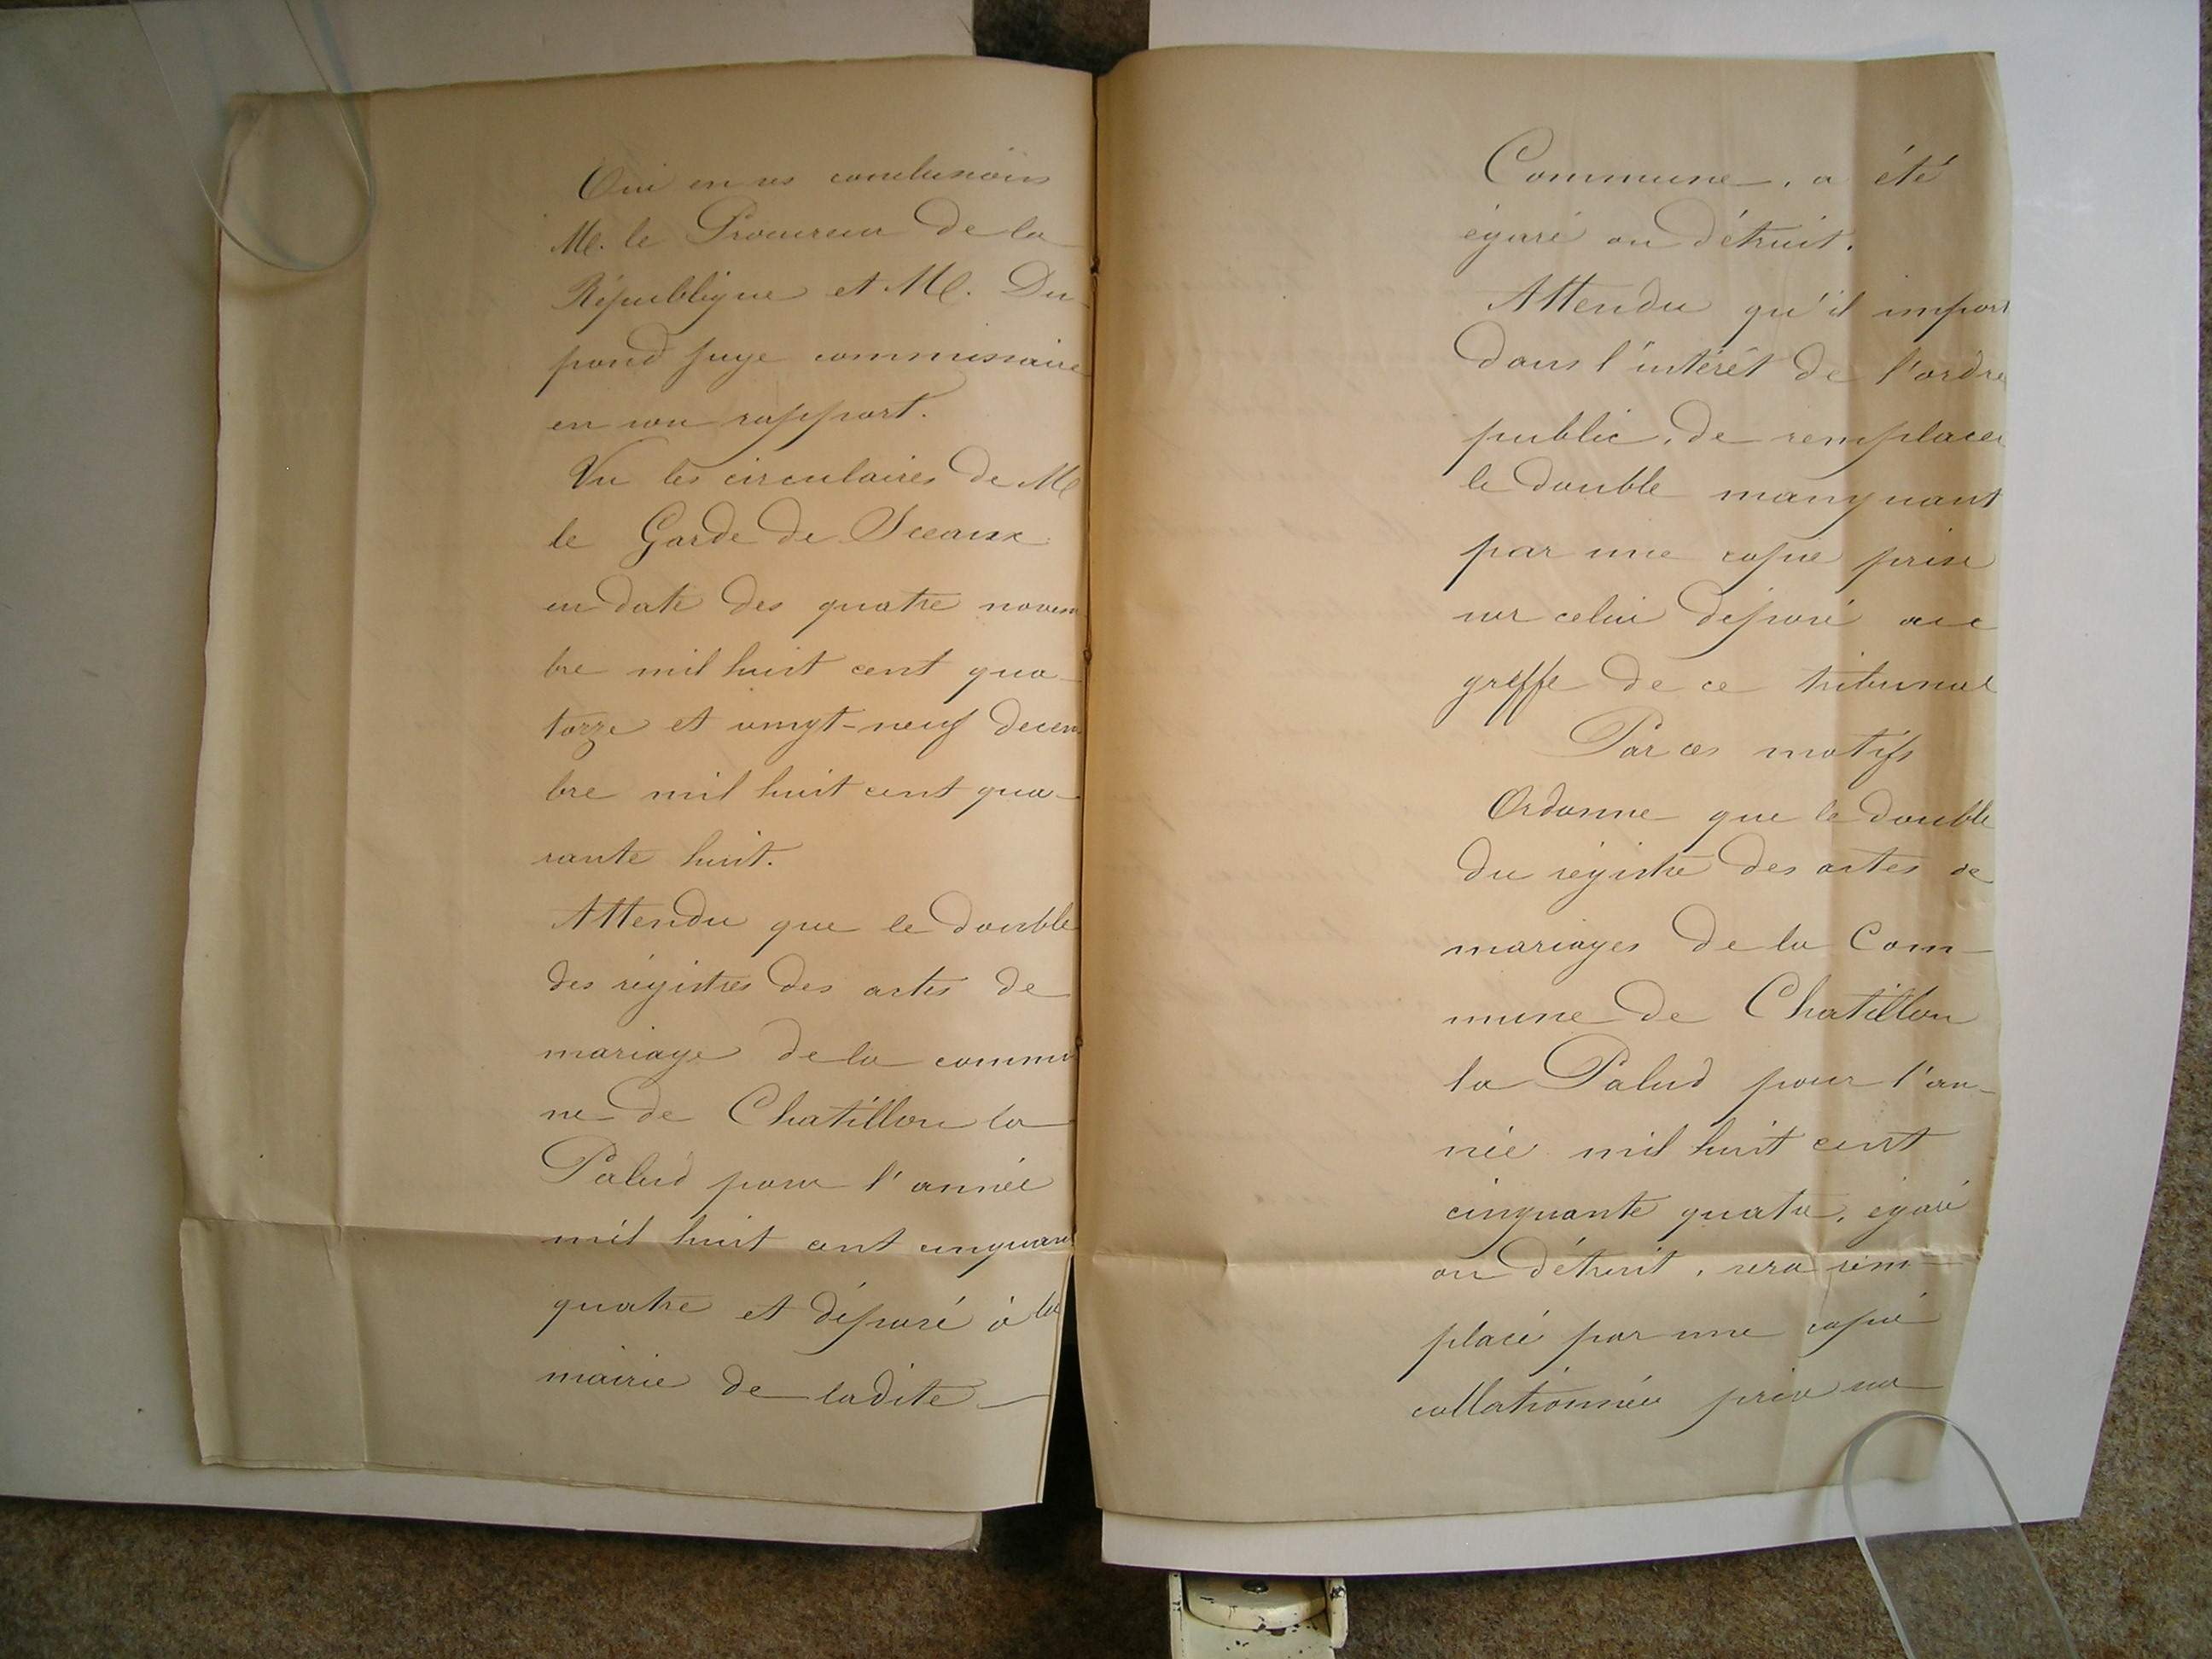 Oui en ses conclusions
M. le Procureur de la
République et M. Du-
pond juge commissaire
en son rapport.
Vu les circulaires de M
le Garde de Sceaux
en date des quatre novem
bre mil huit cent qua-
torze et vingt-neuf decem
bre mil huit cent qua-
rante huit.
Attendu que le double
des régistres des actes de
mariage de la commu
ne de Chatillon la
Palud pour l'année
mil huit cent cinquan
quatre et déposé à la
mairie de ladite
Commune, a été
égaré ou détruit.
Attendu qu'il import
dans l'intérêt de l'ordre
public, de remplacer
le double manquant
par une copie prise
sur celui déposé au
greffe de ce tribunal
Par ces motifs
Ordonne que le double
du régistre des actes de
mariages de la Com-
mune de Chatillon
la Palud pour l'an-
née mil huit cent
cinquante quatre, égaré
ou détruit, sera rem-
placé par une copie
collationnée prise sur